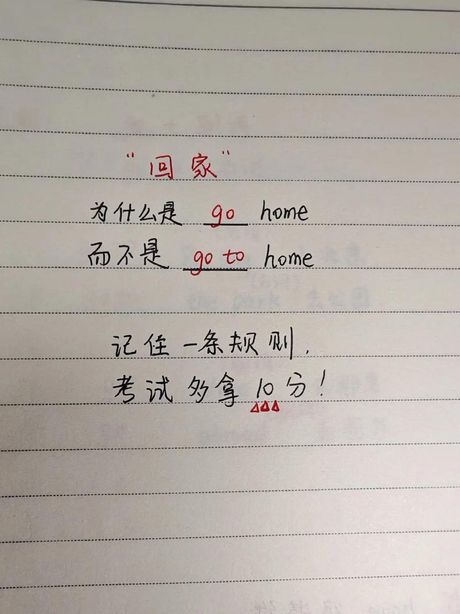 "回家"
为什么是 go home
而不是 go to home
记住一条规则,
考试多拿10分!